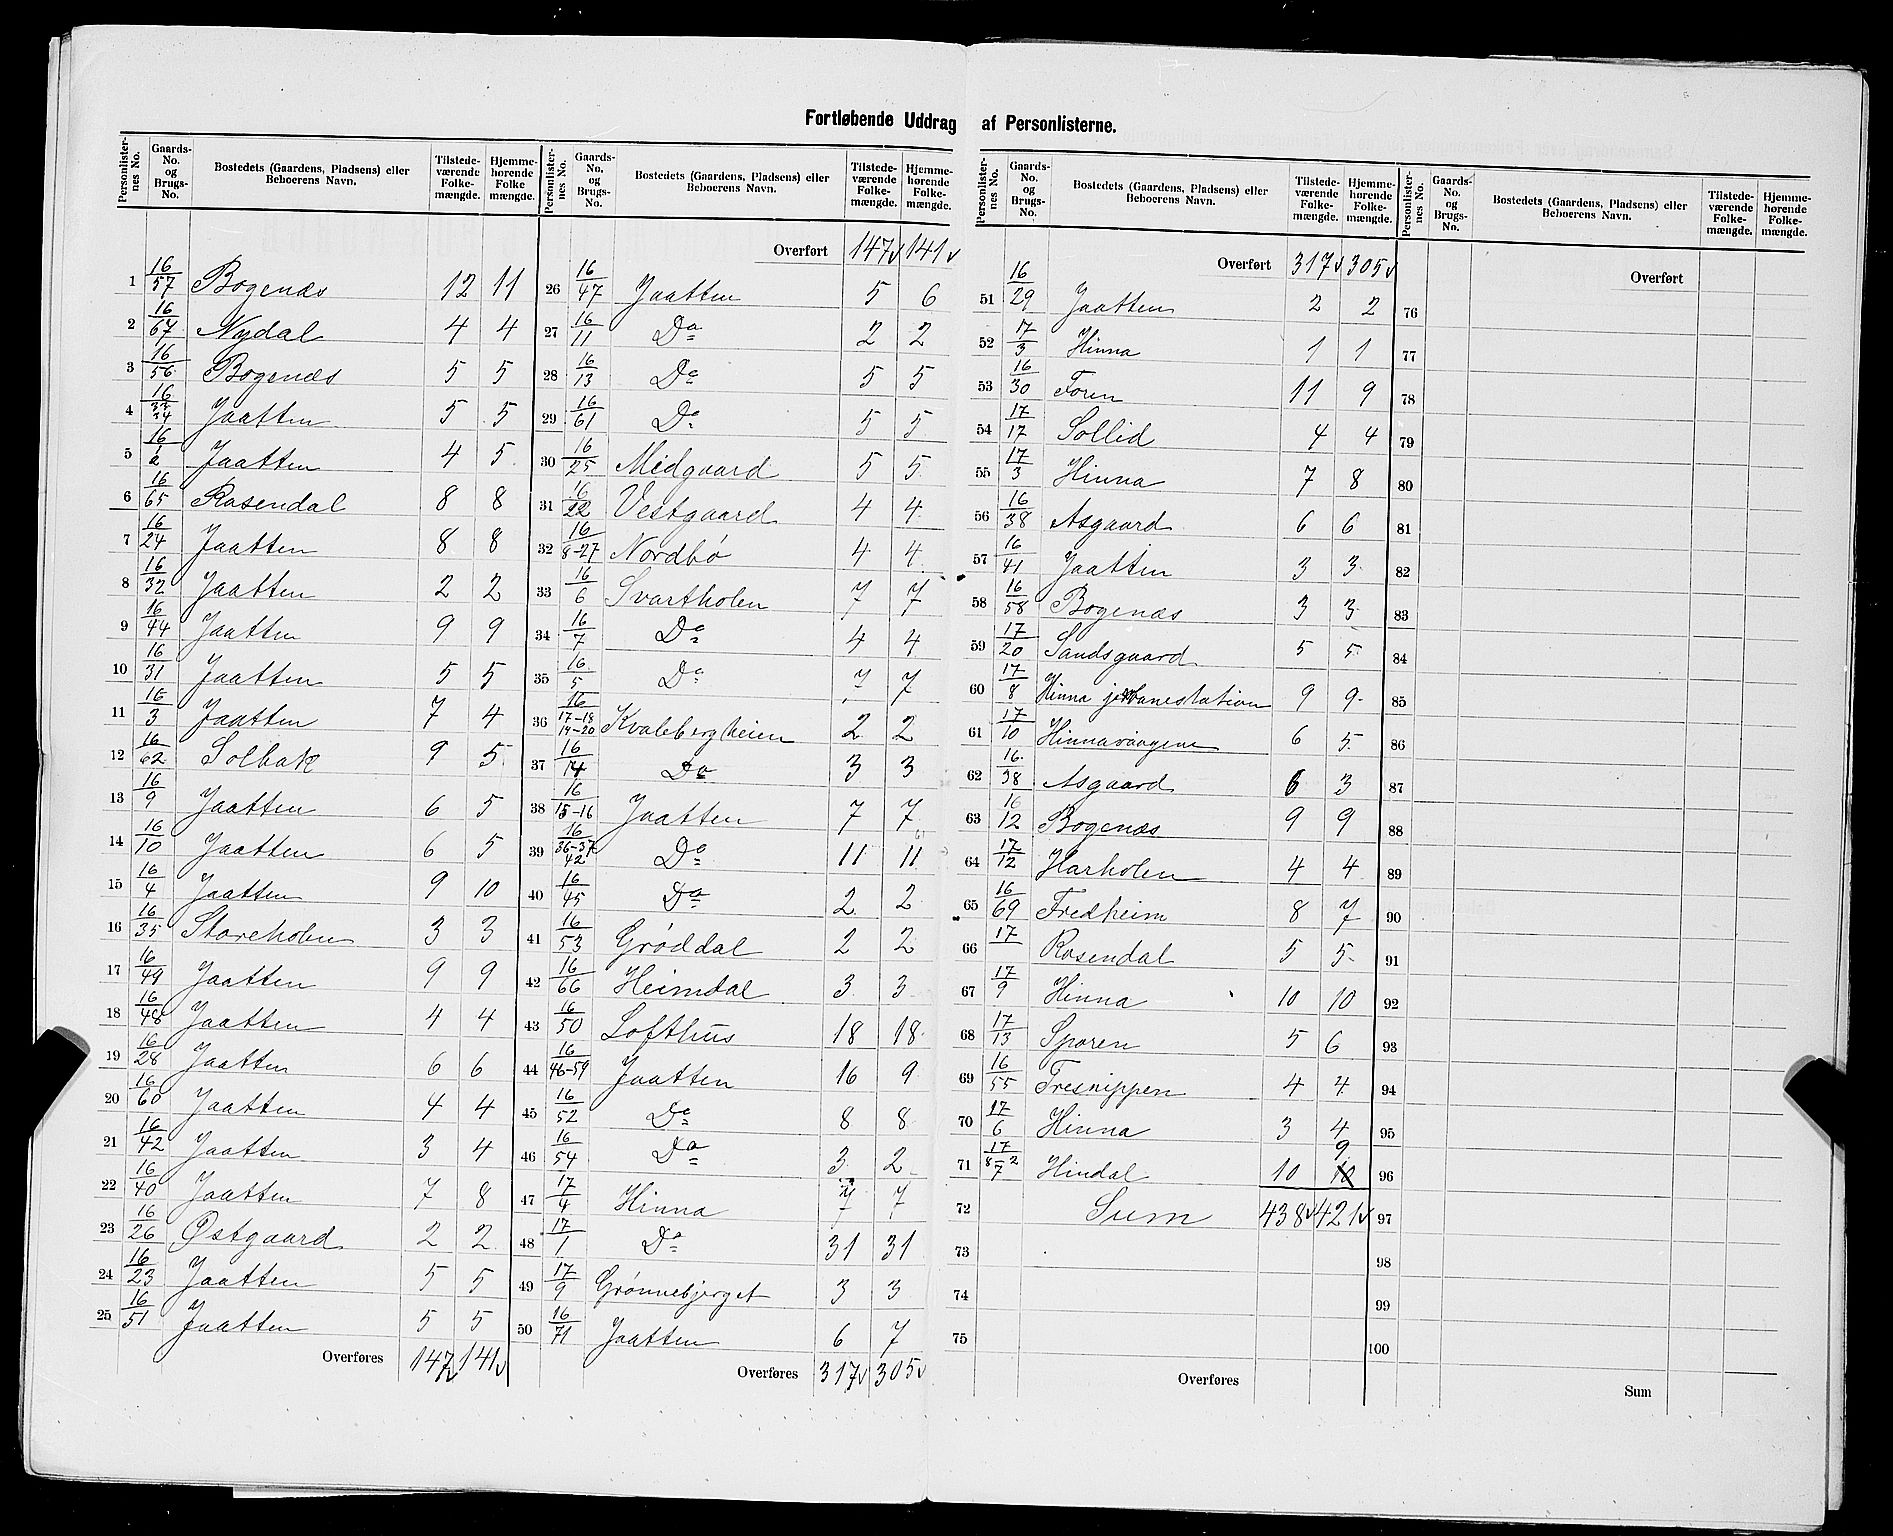 Fortløbende Uddrag af Personlisterne.
Personlister-nes No. | Gaards-No. og Brugs-No. | Bostedets (Gaardens, Pladsens) eller Beboerens Navn. | Tilstede-værende Folke-mængde. | Hjemme-hørende Folke mængde.
1 16/57 Bogenæs 12 11
2 16/67 Nydal 4 4
3 16/56 Bogenæs 5 5
4 16/33 34 Jaatten 5 5
5 16/1 2 Jaatten 4 5
6 16/65 Rosendal 8 8
7 16/24 Jaatten 8 8
8 16/32 Jaatten 2 2
9 16/44 Jaatten 9 9
10 16/31 Jaatten 5 5
11 16/3 Jaatten 7 4
12 16/62 Solbak 9 5
13 16/9 Jaatten 6 5
14 16/10 Jaatten 6 5
15 16/4 Jaatten 9 10
16 16/35 Storeholen 3 3
17 16/49 Jaatten 9 9
18 16/48 Jaatten 4 4
19 16/28 Jaatten 6 6
20 16/60 Jaatten 4 4
21 16/42 Jaatten 3 4
22 16/40 Jaatten 7 8
23 16/26 Østgaard 2 2
24 16/23 Jaatten 5 5
25 16/51 Jaatten 5 5
Overføres 147 141
Personlister-nes No. | Gaards-No. og Brugs-No. | Bostedets (Gaardens, Pladsens) eller Beboerens Navn. | Tilstede-værende Folke-mængde. | Hjemme-hørende Folke-mængde.
Overført 147 141
26 16/47 Jaatten 5 6
27 16/11 Do 2 2
28 16/13 Do 5 5
29 16/61 Do 5 5
30 16/25 Midgaard 5 5
31 16/22 Vestgaard 4 4
32 16/8-27 Nordbø 4 4
33 16/6 Svartholen 7 7
34 16/7 Do 4 4
35 16/5 Do 7 7
36 16/17-18 19-20 Kvalebergheien 2 2
37 16/14 Do 3 3
38 16/15-16 Jaatten 7 7
39 16/36-37 42 Do 11 11
40 16/45 Do 2 2
41 16/53 Grøddal 2 2
42 16/66 Heimdal 3 3
43 16/50 Lofthus 18 18
44 16/46-59 Jaatten 16 9
45 16/52 Do 8 8
46 16/54 Do 3 2
47 17/4 Hinna 7 7
48 17/1 Do 31 31
49 17/9 Grønnebjerget 3 3
50 16/71 Jaatten 6 7
Overføres 317 305
Personlister-nes No. | Gaards-No. og Brugs-No. | Bostedets (Gaardens, Pladsens) eller Beboerens Navn. | Tilstede-værende Folke-mængde. | Hjemme-hørende Folke-mængde.
Overført 317 305
51 16/29 Jaatten 2 2
52 17/3 Hinna 1 1
53 16/30 Foren 11 9
54 17/17 Sollid 4 4
55 17/3 Hinna 7 8
56 16/38 Asgaard 6 6
57 16/41 Jaatten 3 3
58 16/58 Bogenæs 3 3
59 17/20 Sandsgaard 5 5
60 17/8 Hinna jernbanestation 9 9
61 17/10 Hinnavaagene 6 5
62 16/38 Asgaard 6 3
63 16/12 Bogenæs 9 9
64 17/12 Harholen 4 4
65 16/69 Fredheim 8 7
66 17 Rosendal 5 5
67 17/9 Hinna 10 10
68 17/13 Sporen 5 6
69 16/55 Tresnippen 4 4
70 17/6 Hinna 3 4
71 17/8-2 7 Hindal 10 10 9
72 Sum 438 421
73
74
75
Overføres
Personlister-nes No. | Gaards-No. og Brugs-No. | Bostedets (Gaardens, Pladsens) eller Beboerens Navn. | Tilstede-værende Folke-mængde. | Hjemme-hørende Folke-mængde.
Overført
76
77
78
79
80
81
82
83
84
85
86
87
88
89
90
91
92
93
94
95
96
97
98
99
100
Sum